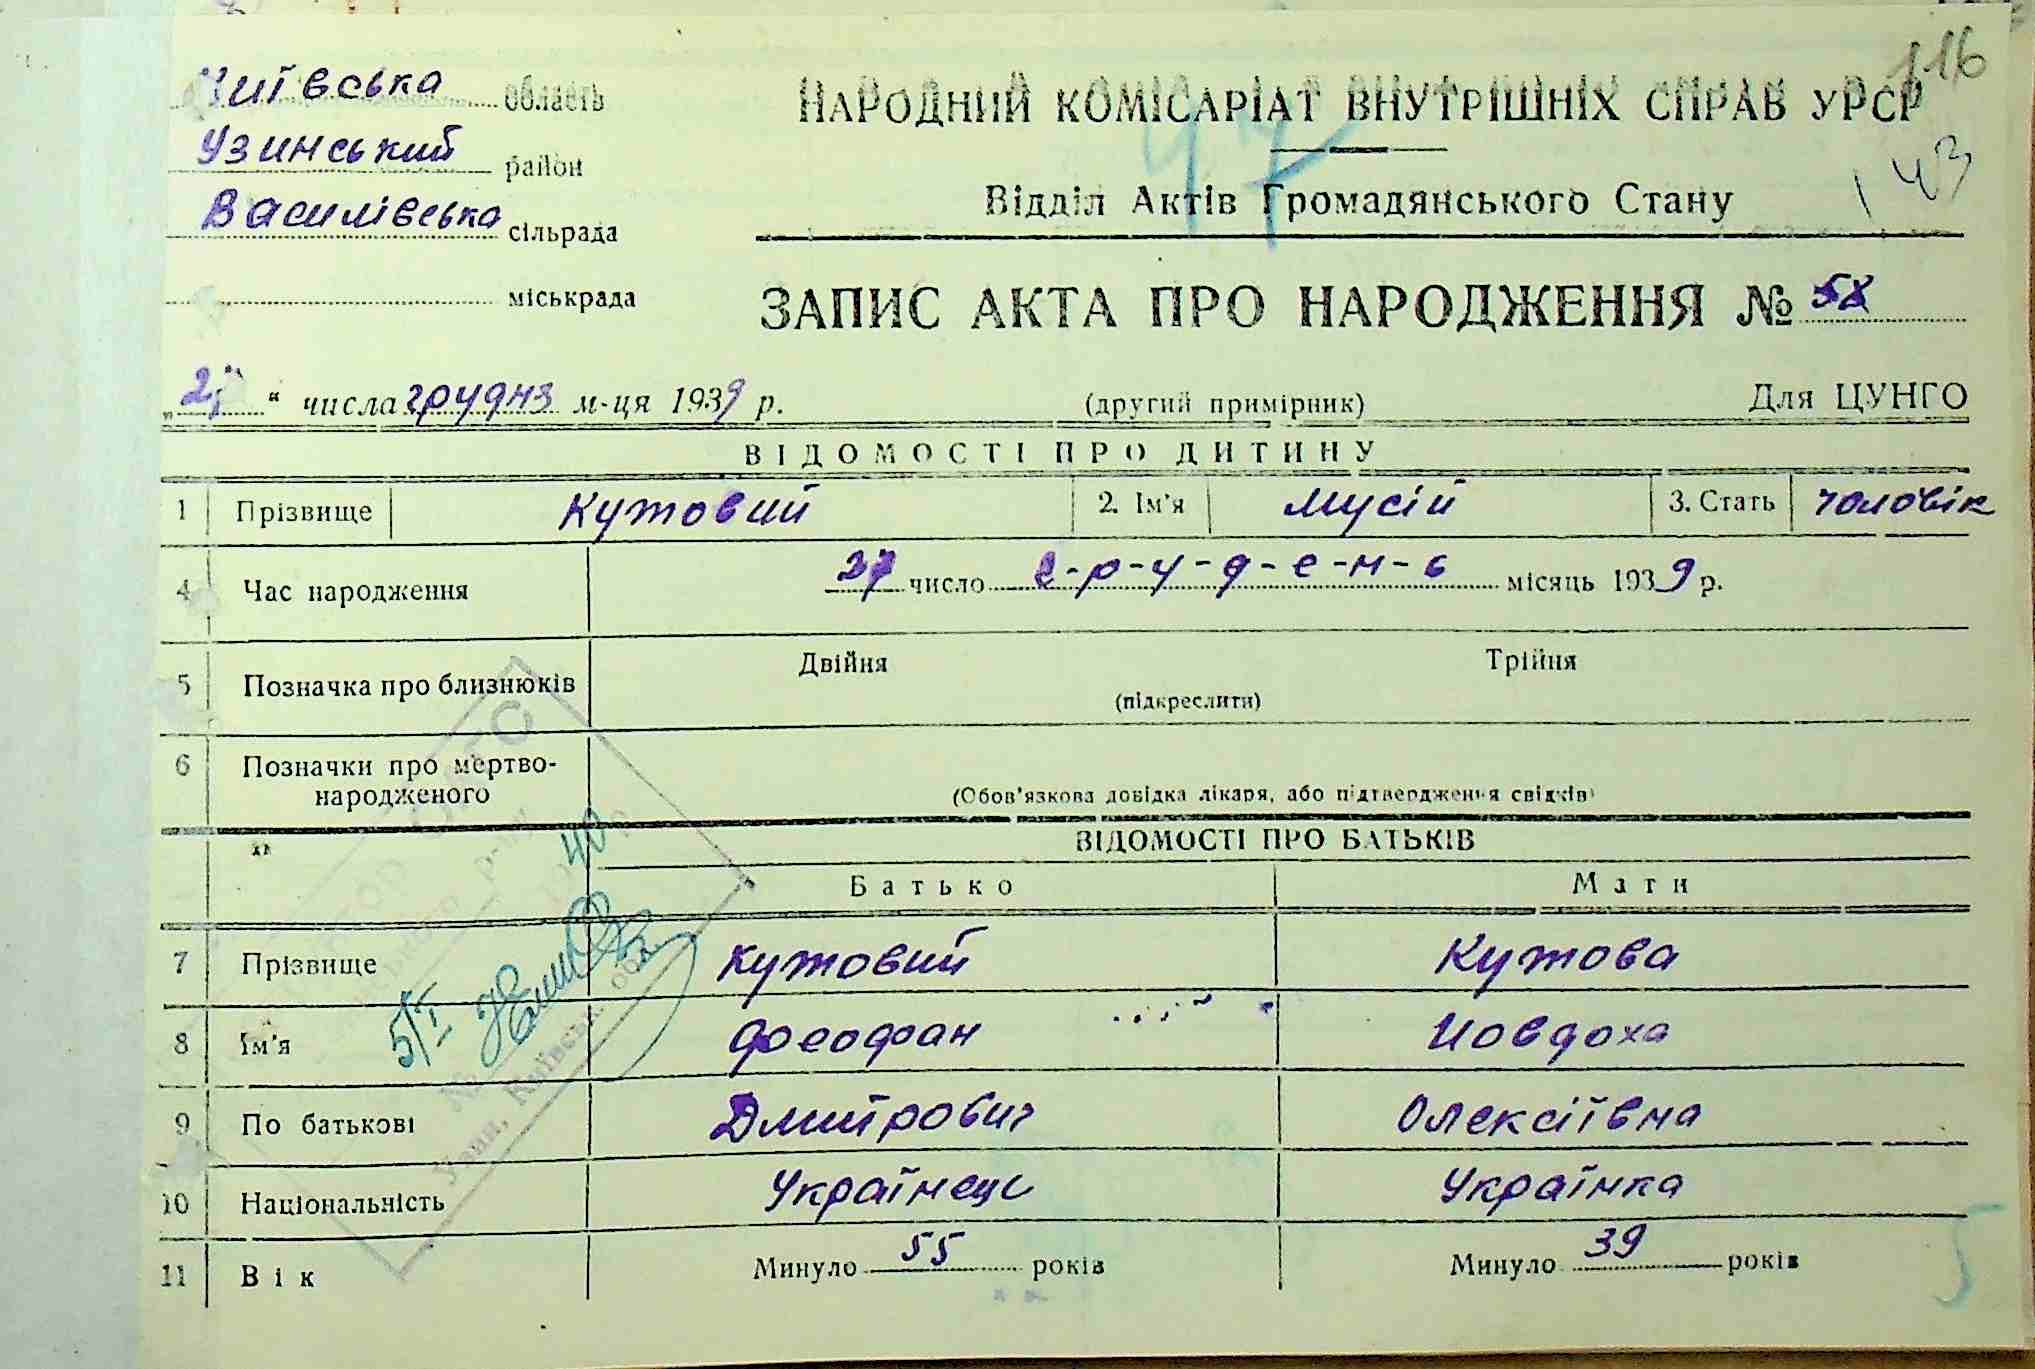 116
Київська область
НАРОДНИЙ КОМІСАРІАТ ВНУТРІШНІХ СПРАВ УРСР
47
Узинський район
143
Василівська сільрада
Відділ Актів Громадянського Стану
міськрада
ЗАПИС АКТА ПРО НАРОДЖЕННЯ № 58
" числа грудня м-ця 1939 р.
(другий примірник)
Для ЦУНГО
ВІДОМОСТІ ПРО ДИТИНУ
1 Прізвище Кутовий 2. Ім'я Мусій 3. Стать чоловік
4 Час народження 27 число г-р-у-д-е-н-ь місяць 1939 р.
5 Позначка про близнюків Двійня Трійня
(підкреслити)
6 Позначки про мертво-
народженого
(Обов'язкова довідка лікаря, або підтвердження свідків)
ВІДОМОСТІ ПРО БАТЬКІВ
Батько Мати
7 Прізвище Кутовий Кутова
8 Ім'я Феофан Йовдоха
9 По батькові Дмитрович Олексіївна
10 Національність Українець Українка
11 Вік Минуло 55 років Минуло 39 років
40
5/I
Узин, Київськ. обл.
5